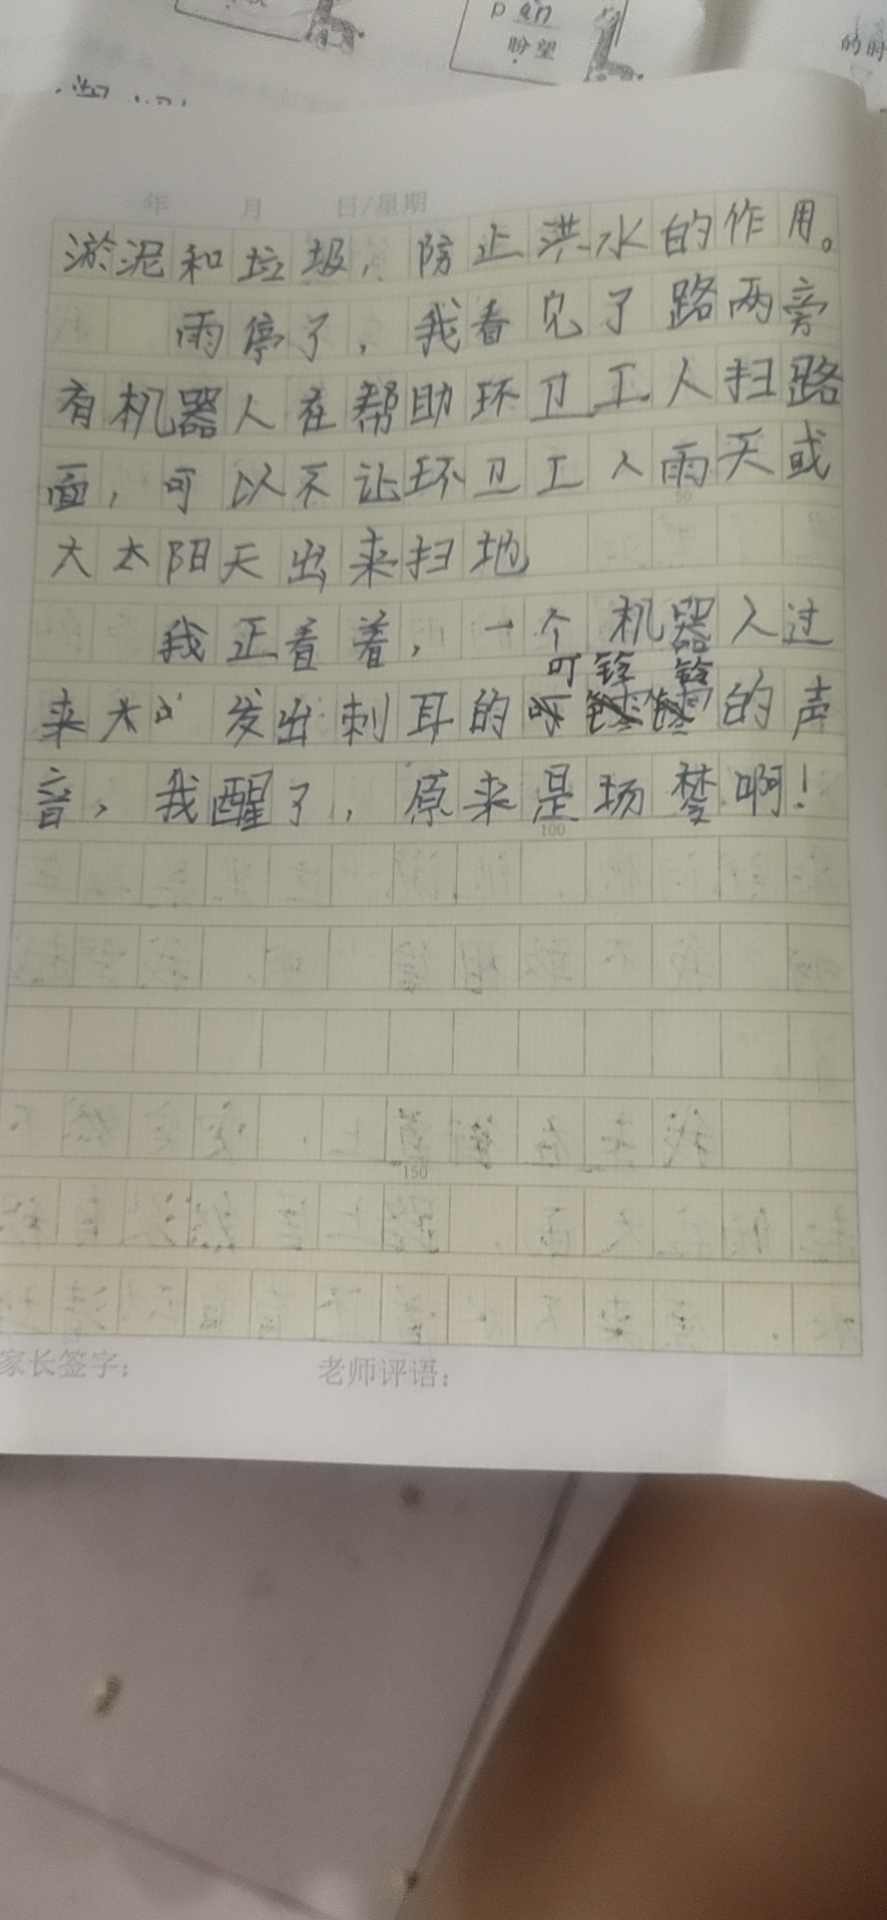 pàn
盼望
的时
年 月 日/星期
淤泥和垃圾，防止洪水的作用。
雨停了，我看见了路两旁
有机器人在帮助环卫工人扫路
面，可以不让环卫工人雨天或
大太阳天出来扫地
我正看着，一个机器人过
叮铃铃
来大 发出刺耳的 的声
音，我醒了，原来是场梦啊！
50
100
150
家长签字：
老师评语：